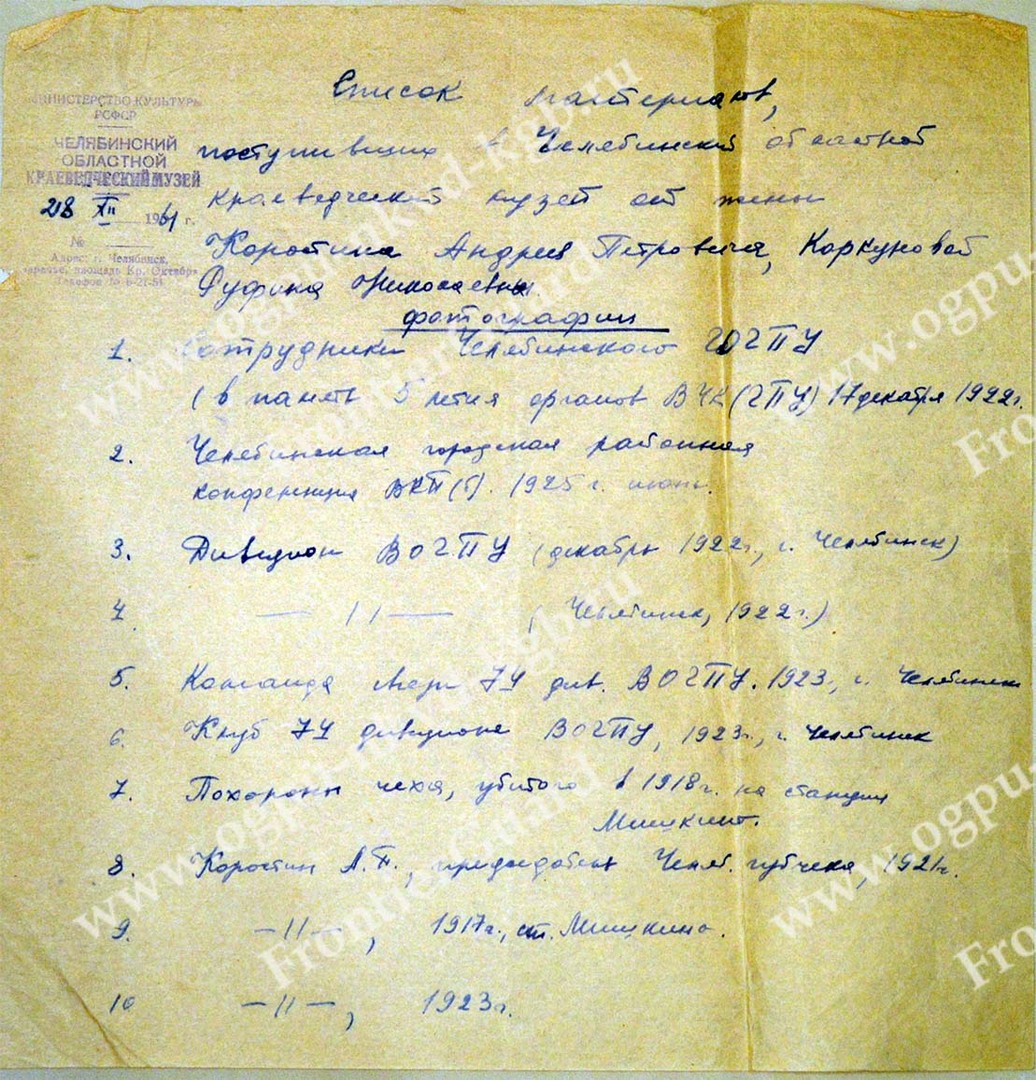 МИНИСТЕРСТВО КУЛЬТУРЫ
РСФСР
ЧЕЛЯБИНСКИЙ
ОБЛАСТНОЙ
КРАЕВЕДЧЕСКИЙ МУЗЕЙ
28 XII 1961 г.
№
Адрес: г. Челябинск,
площадь Кр. Октябр
Телефон № 6-21-51
Список материалов,
поступивших в Челябинский областной
краеведческий музей от жены
Коростина Андрея Петровича, Каркуновой
Руфина Николаевны.
фотографии
1. Сотрудники Челябинского ГОГПУ
(в память 5 летия органов ВЧК (ГПУ) 17 декабря 1922г.
2. Челябинская городская районная
конференция ВКП(б). 1925 г. июнь.
3. Дивизион ВОГПУ (декабрь 1922г., г. Челябинск)
4. — // — (Челябинск, 1922г.)
5. Команда связи 74 див. ВОГПУ. 1923г., г. Челябинск
6. Клуб 74 дивизиона ВОГПУ, 1923г., г. Челябинск
7. Похороны чеха, убитого в 1918г. на станции
Мишкино.
8. Коростин А.П., председатель Челяб. губчека, 1921г.
9. —//—, 1917г., ст. Мишкино.
10 —//—, 1923г.
www.ogpu-nkvd-kgb.ru
Frontier Guard
www.ogpu
www.ogpu-nkvd-kgb.ru
Frontier Guard
www.ogpu